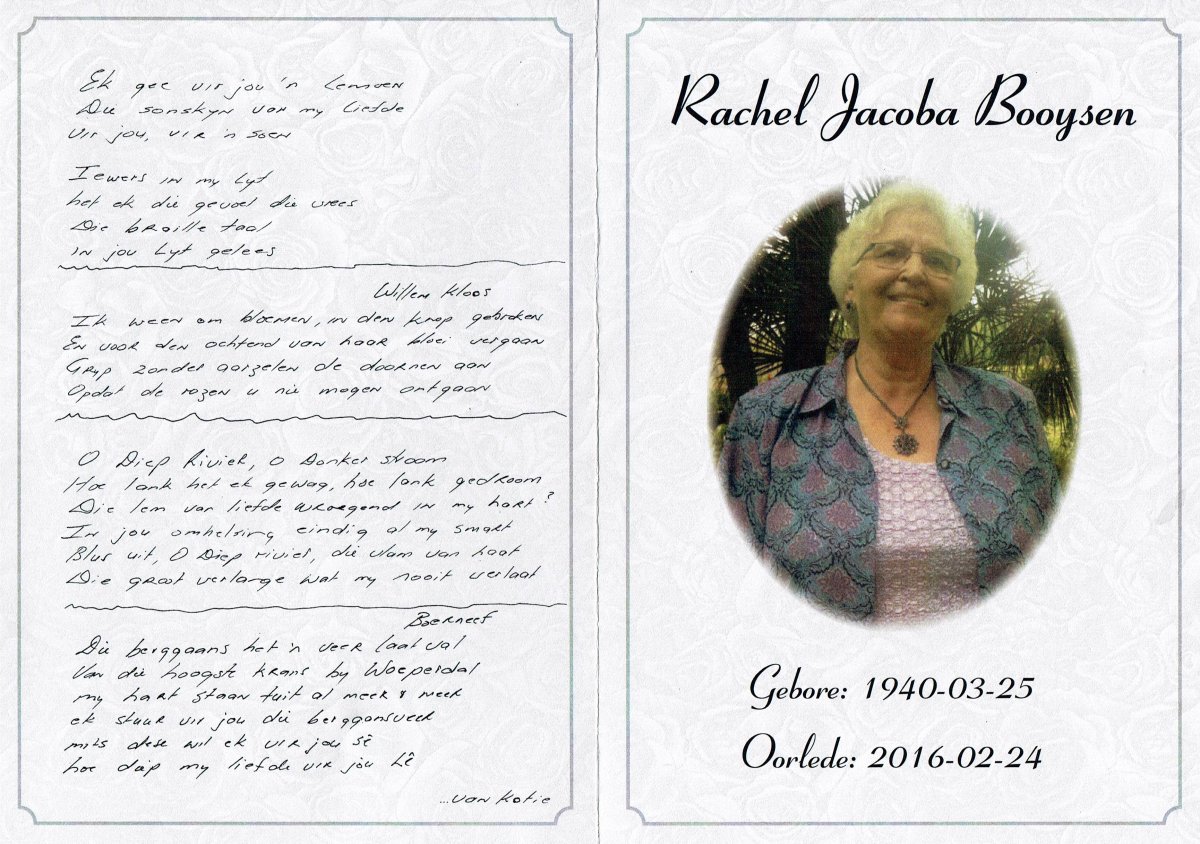 Ek gee vir jou 'n Lemoen
Die sonskyn van my Liefde
Vir jou, vir 'n soen
Iewers in my Lyf
het ek die gevoel die vrees
Die braille taal
in jou Lyf gelees
Willem Kloos
Ik ween om bloemen, in den knop gebroken
En voor den ochtend van haar bloei vergaan
Gryp zonder aarzelen de doornen aan
Opdat de rozen u nie mogen ontgaan
O Diep Rivier, O Donker stroom
Hoe lank het ek gewag, hoe lank gedroom
Die lem van liefde wroegend in my hart?
In jou omhelsing eindig al my smart
Blus uit, O Diep rivier, die vlam van haat
Die groot verlange wat my nooit verlaat
Boerneef
Die berggans het 'n veer laat val
Van die hoogste krans by Woeperdal
my hart staan tuit al meer & meer
ek stuur vir jou die berggansveer
mits dese wil ek vir jou sê
hoe diep my liefde vir jou lê
...van Kotie
Rachel Jacoba Booysen
Gebore: 1940-03-25
Oorlede: 2016-02-24